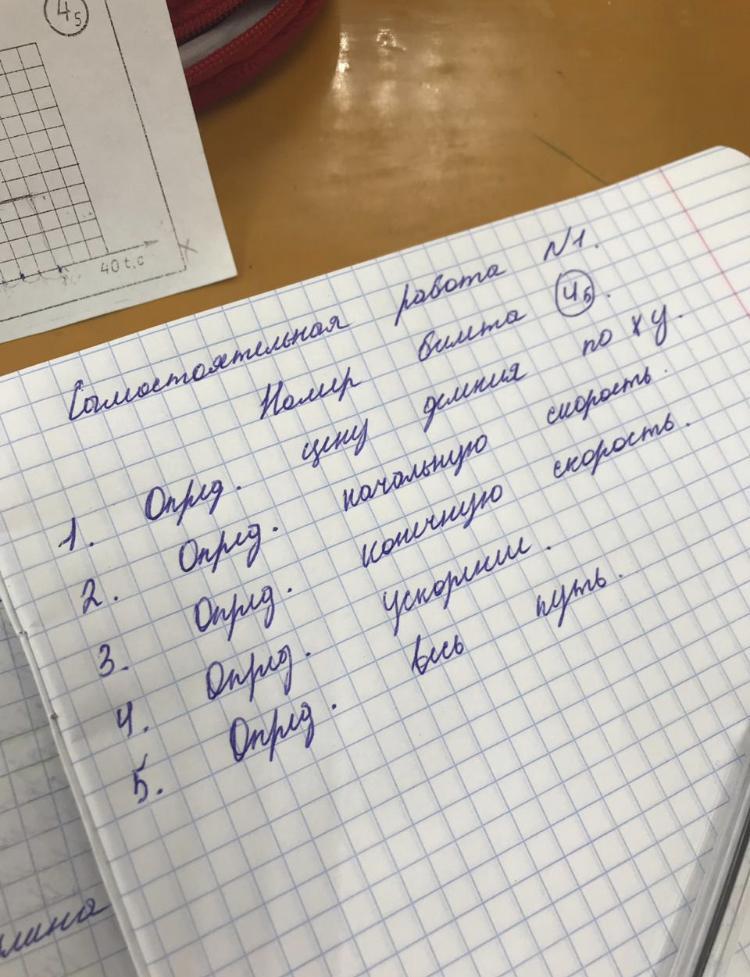 4₅
40 t,c
x
Самостоятельная работа N1.
Номер билета 4₅.
1. Опред. цену деления по x y.
2. Опред. начальную скорость.
3. Опред. конечную скорость.
4. Опред. ускорение.
5. Опред. весь путь.